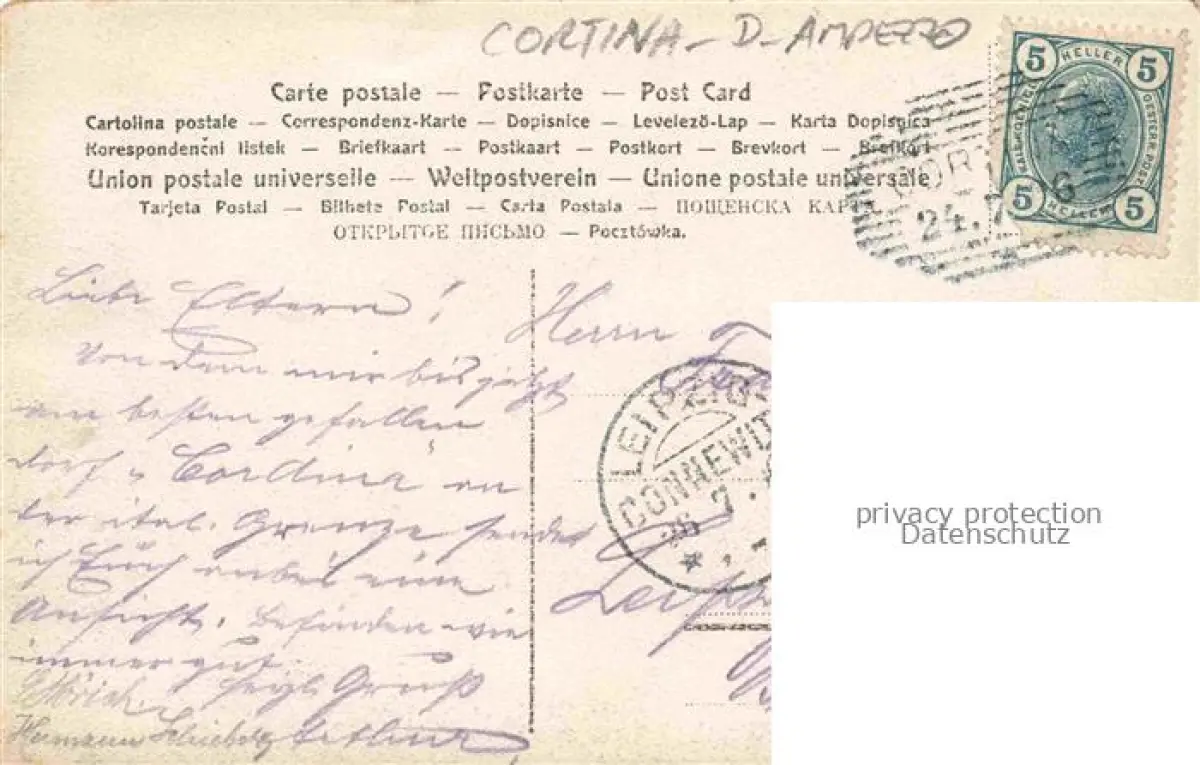 CORTINA - D - AMPEZZO
Carte postale — Postkarte — Post Card
Cartolina postale — Correspondenz-Karte — Dopisnice — Levelező-Lap — Karta Dopisnica
Korespondenční listek — Briefkaart — Postkaart — Postkort — Brevkort — Brefkort
Union postale universelle — Weltpostverein — Unione postale universale
Tarjeta Postal — Bilhete Postal — Carta Postala — ПОЩЕНСКА КАР
ОТКРЫТОЕ ПИСЬМО — Pocztówka.
5 HELLER 5
5 HELLER 5
24.7 6
Liebe Eltern!
Von dem mir bis jetzt
am besten gefallen
dorf „Cordina" an
der ital. Grenze sendet
ich Euch anbei eine
Ansicht. Befinden wie
immer gut.
herzl. Gruß
Hermann
Herrn
LEIPZIG-
CONNEWIT
26.7.
Leipz
privacy protection
Datenschutz